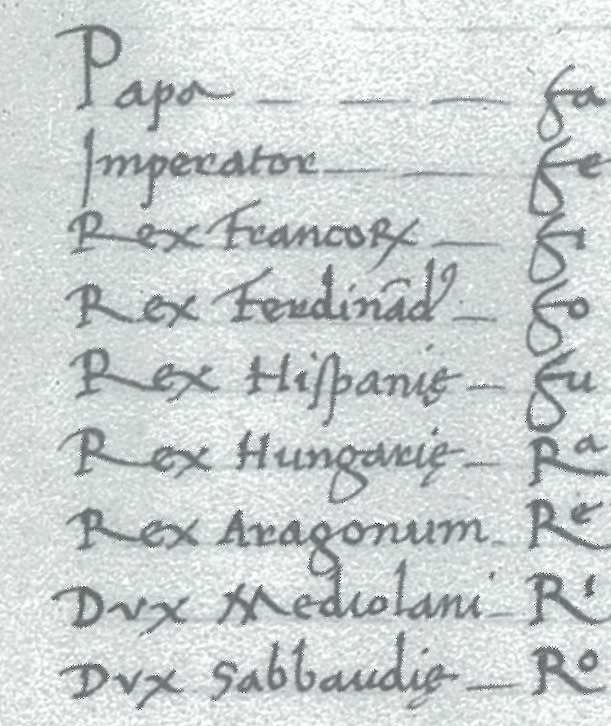 Papa — — — ga
Imperator — — ge
Rex Francoꝝ — gi
Rex Ferdinãdꝰ — go
Rex Hiſpanię — gu
Rex Hungarię — Rᵃ
Rex Aragonum — Rᵉ
Dvx Mediolani — Rⁱ
Dvx Sabbaudię — Rᵒ